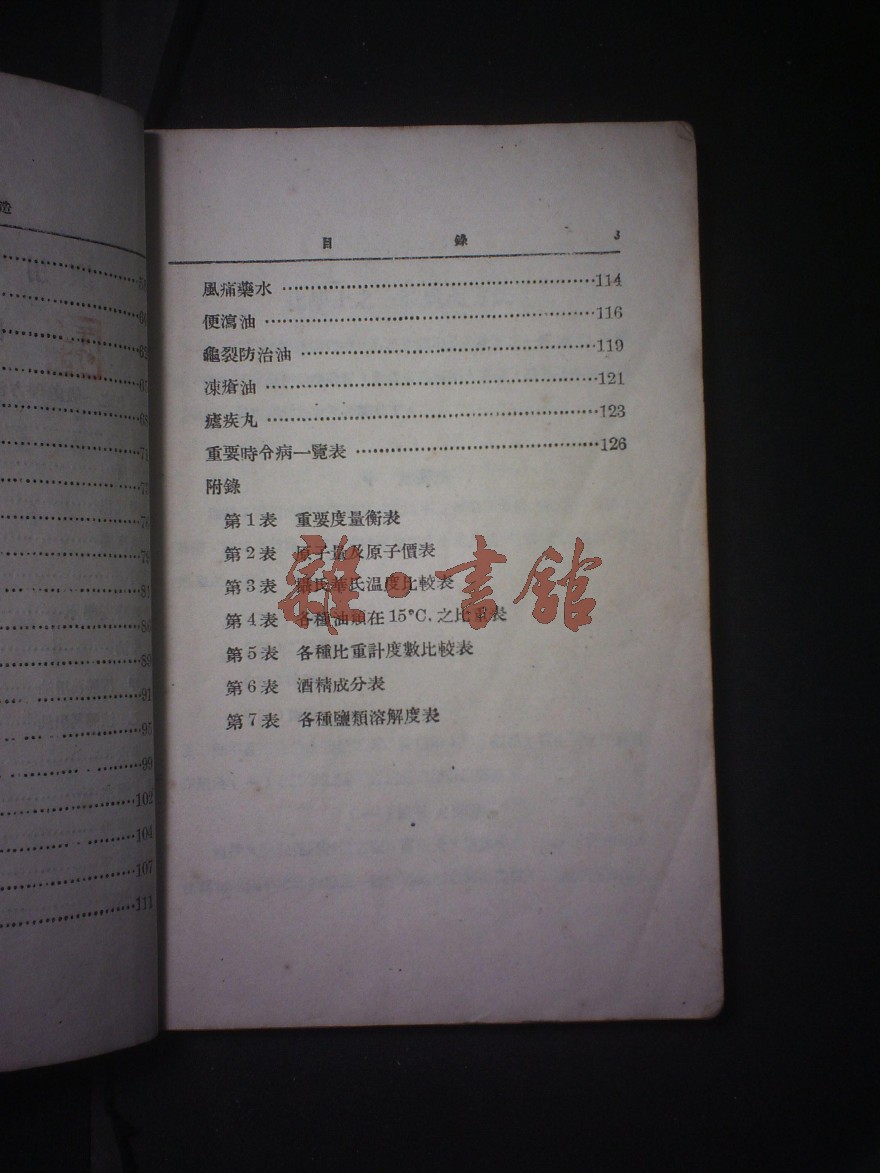 造
60
62
67
68
71
79
81
86
89
91
95
99
102
104
107
111
目 錄 3
風痛藥水 ……………………………………114
便瀉油 ……………………………………116
龜裂防治油 ……………………………………119
凍瘡油 ……………………………………121
瘧疾丸 ……………………………………123
重要時令病一覽表 ……………………………………126
附錄
第1表 重要度量衡表
第2表 原子量及原子價表
第3表 攝氏華氏溫度比較表
第4表 各種油類在15°C.之比重表
第5表 各種比重計度數比較表
第6表 酒精成分表
第7表 各種鹽類溶解度表
雜·書館